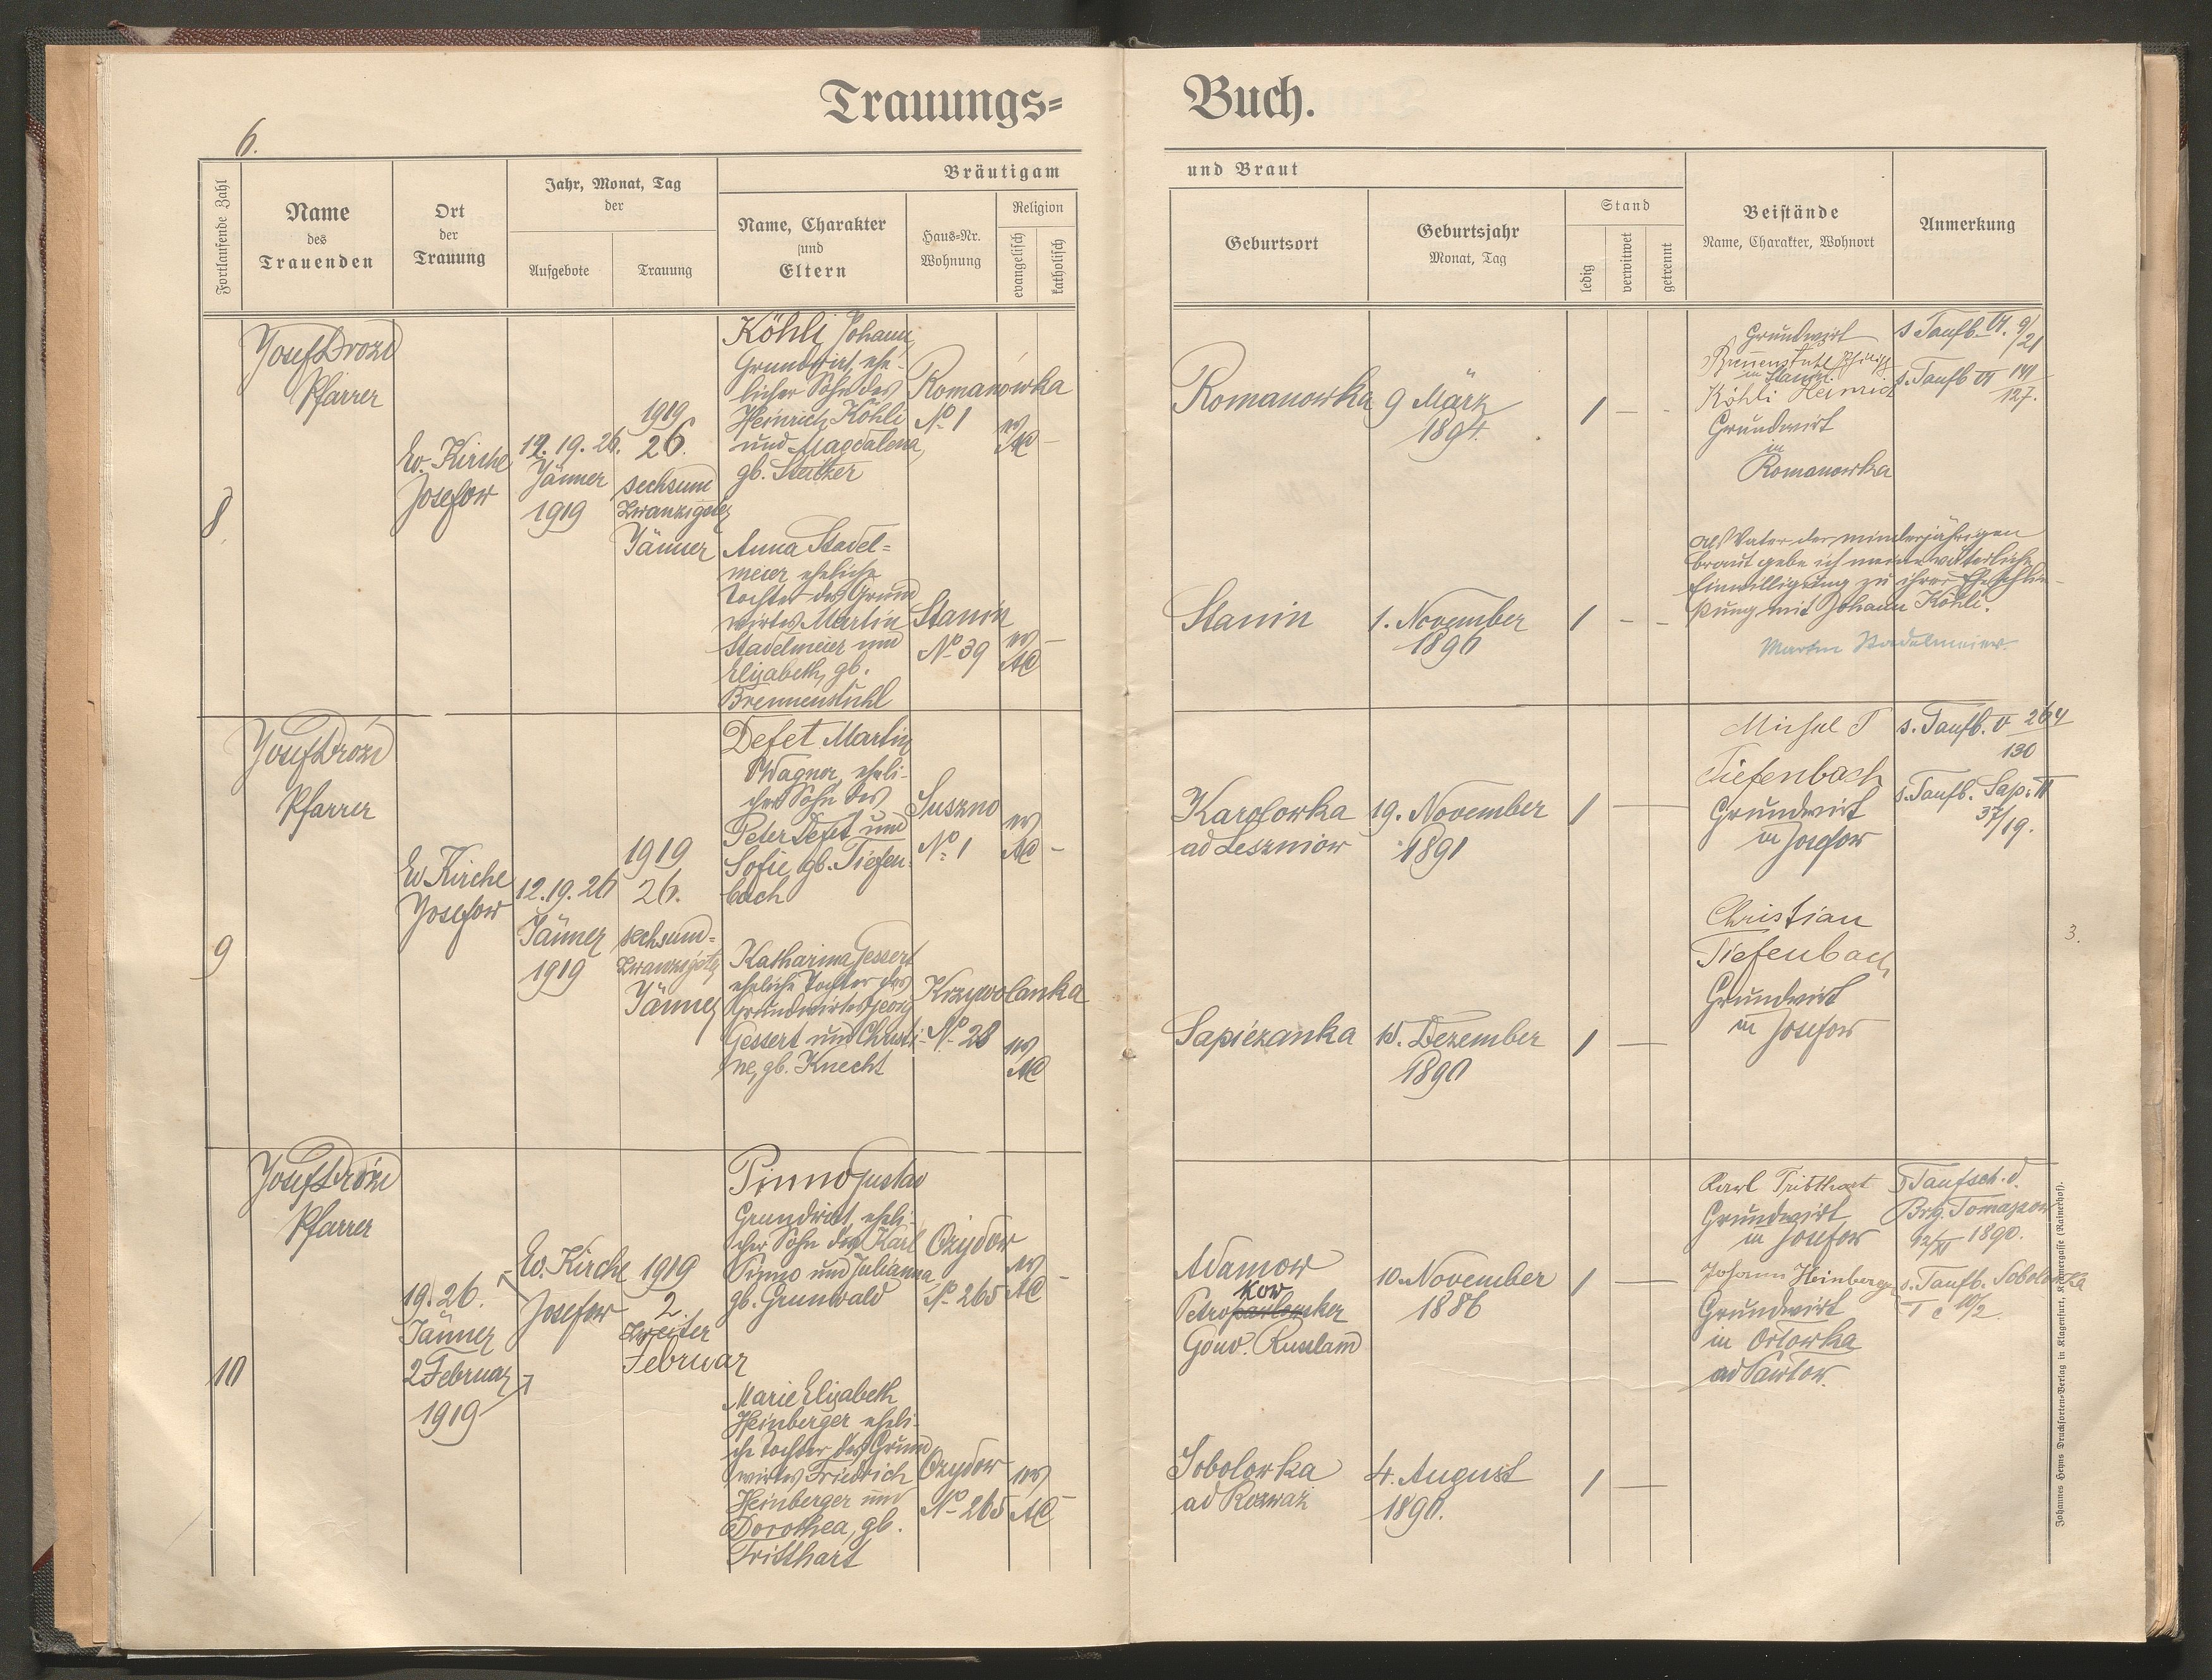 Trauungs=
Buch.
6.
Fortlaufende Zahl
Name
des
Trauenden
Ort
der
Trauung
Jahr, Monat, Tag
der
Aufgebote
Trauung
Bräutigam
Name, Charakter
und
Eltern
Haus=Nr.
Wohnung
Religion
evangelisch
katholisch
und Braut
Geburtsort
Geburtsjahr
Monat, Tag
Stand
ledig
verwitwet
getrennt
Beistände
Name, Charakter, Wohnort
Anmerkung
8
Josef Drozd
Pfarrer
Ev. Kirche
Josefow
12. 19. 26.
Jänner
1919
1919
26.
sechsund
zwanzigster
Jänner
Köhli Johann,
Grundwirt, ehe-
licher Sohn des
Heinrich Köhli
und Magdalena,
gb. Steitzer
Romanówka
No 1
ev
AC –
Anna Stadel=
meier eheliche
Tochter des Grund
wirtes Martin
Stadelmeier und
Elisabeth, gb.
Brennenstuhl
Stanin
No 39
ev –
AC
Romanowka
9 März
1894.
1 – -
Stanin
1. November
1896
1 – –
Grundwirt
Brennenstuhl Philipp
in Stanin.
Köhli Heinrich
Grundwirt
in
Romanowka
s Taufb. VI. 9/21
s. Taufb VI 141/127.
Als Vater der minderjährigen
braut gebe ich meine väterliche
Einwilligung zu ihrer Eheschlie-
ßung mit Johann Köhli.
Martin Stadelmeier
9
Josef Drozd
Pfarrer
Ev Kirche
Josefow
12. 19. 26
Jänner
1919
1919
26.
sechsund=
zwanzigster
Jänner
Defet Martin
Wagner, eheli-
cher Sohn des
Peter Defet und
Sofie gb. Tiefen-
bach
Suszno
No 1
ev
AC –
Katharina Gessert
eheliche Tochter des
Grundwirtes Georg
Gessert und Christi-
ne, gb. Knecht
Krzywolanka
No 28
ev
AC
Karolowka
ad Leszniow
19. November
1891
1 —
Sapiezanka
15. Dezember
1890
1 —
Michel T
Tiefenbach
Grundwirt
in Josefow
Christian
Tiefenbach
Grundwirt
in Josefow
s. Taufb. V 264/130
s. Taufb. Sap. II
37/19.
3.
10
Josef Drozd
Pfarrer
19. 26.
Jänner
2 Februar
1919
Ev. Kirche
Josefow
1919
2.
Zweiter
Februar
Pinno Gustav
Grundwirt, eheli-
cher Sohn des Karl
Pinno und Julianna
gb. Grunwald
Ozydow
No 265
ev
AC –
Marie Elisabeth
Heinberger eheli-
che Tochter des Grund
wirtes Friedrich
Heinberger und
Dorothea, gb.
Tritthart
Ozydow
No 265
ev
AC –
Adamow
kow
Petro
sker
Gouv. Russland
10. November
1886
1 —
Sobolowka
ad Rozwaz
4. August
1890.
1 —
Karl Tritthart
Grundwirt
in Josefow
Johann Heinberger
Grundwirt
in Orlowka
ad Pawlow.
Taufsch. d.
Brg. Tomaszow
1890.
s. Taufb. Sobolowka
T c 10/2.
Johannes Heyns Drucksorten=Verlag in Klagenfurt, Kramergasse (Rainerhof).